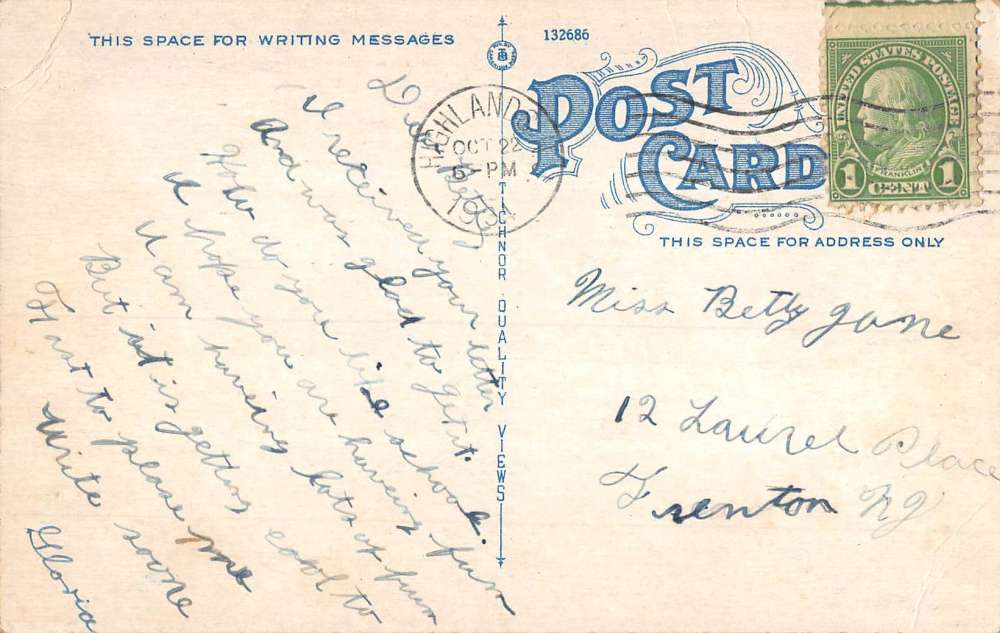 THIS SPACE FOR WRITING MESSAGES
Dear Betty
I received your letter
And was glad to get it.
How do you like school.
I hope you are haveing fun
I am haveing lots of fun
But it is getting cool to
Fast to please me
Write soone
Gloria
TICHNOR QUALITY VIEWS
132686
POST CARD
HIGHLAND
OCT 22
5 PM
193
UNITED STATES POSTAGE
FRANKLIN
1 CENT 1
THIS SPACE FOR ADDRESS ONLY
Miss Betty Jane
12 Laurel Place
Trenton NJ